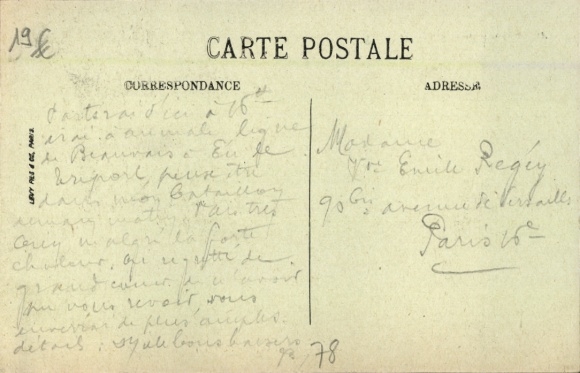 19 €
CARTE POSTALE
CORRESPONDANCE
ADRESSE
LEVY FILS & CIE, PARIS
Partirai d'ici à 16 h
irai à ligne
de Beauvais à Eu le
Tréport, peut être
dans mon bataillon
malgré la forte
chaleur, ai regretté de
grand coeur de n'avoir
pu vous revoir, vous
enverrai de plus amples
détails. bons baisers
Madame
Vve Emile Regéy
90 bis avenue de Versailles
Paris 16e
78